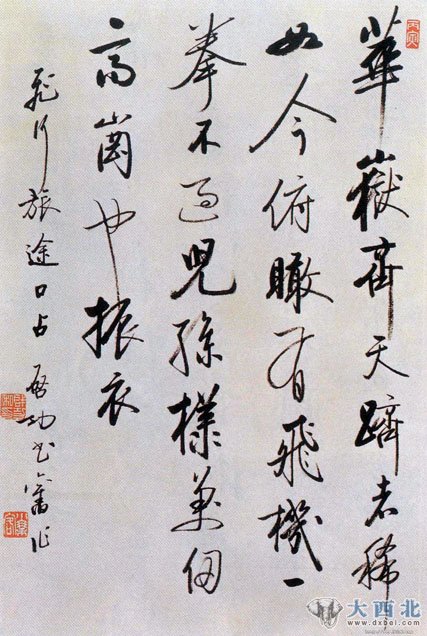 華嶽齊天躋者稀
如今俯瞰有飛機一
拳不過兒孫樣萬仞
高崗也振衣
飛行旅途口占 啓功書舊作
大西北
www.dxbei.com